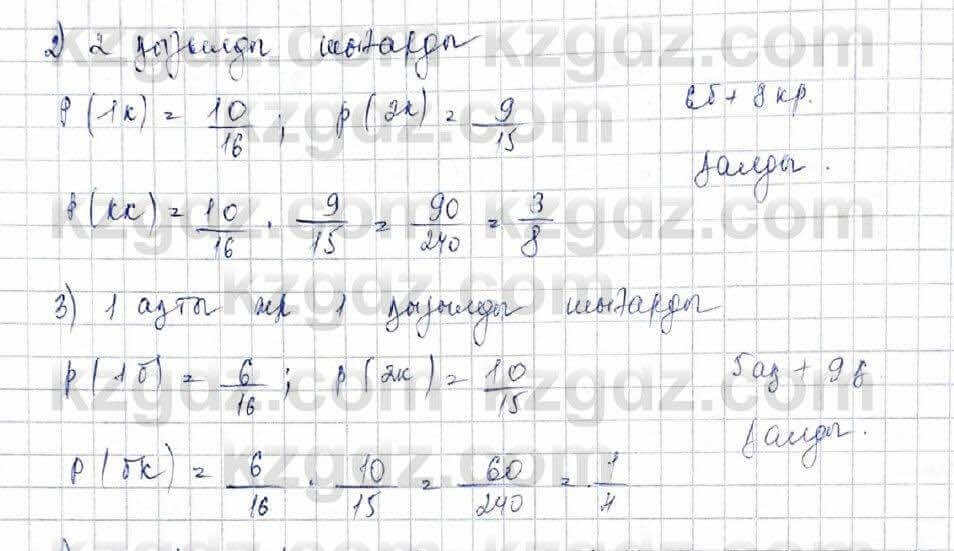 2) 2 қызылды шығарды
P(1к) = 10/16 ; p(2к) = 9/15
6б + 8 кр.
қалды.
P(кк) = 10/16 · 9/15 = 90/240 = 3/8
3) 1 ақты жә 1 қызылды шығарды
P(1б) = 6/16 ; P(2к) = 10/15
5 ақ + 9 қ
қалды.
P(бк) = 6/16 · 10/15 = 60/240 = 1/4
kzgdz.com